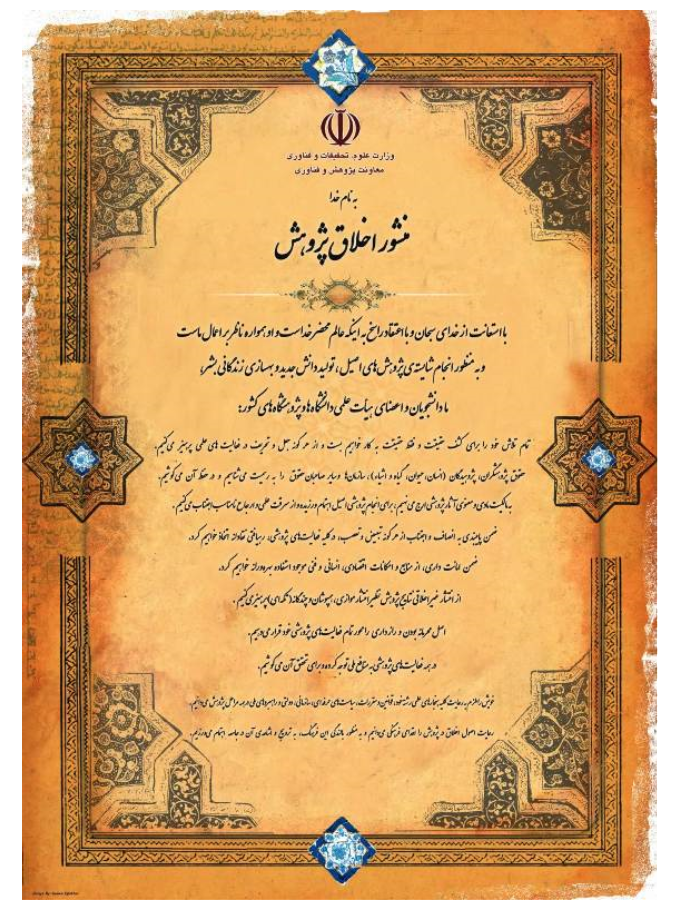 وزارت علوم، تحقیقات و فناوری
معاونت پژوهش و فناوری
به نام خدا
منشور اخلاق پژوهش
با استعانت از خدای سبحان و با اعتقاد راسخ به اینکه عالم محضر خداست و او همواره ناظر بر اعمال ماست
و به منظور انجام شایسته‌ی پژوهش‌های اصیل، تولید دانش جدید و بهسازی زندگانی بشر،
ما دانشجویان و اعضای هیأت علمی دانشگاه‌ها و پژوهشگاه‌های کشور:
تمام تلاش خود را برای کشف حقیقت و فقط حقیقت به کار خواهیم بست و از هر گونه جعل و تحریف در فعالیت های علمی پرهیز می‌کنیم.
حقوق پژوهشگران، پژوهیدگان (انسان، حیوان، گیاه و اشیاء)، سازمان‌ها و سایر صاحبان حقوق را به رسمیت می‌شناسیم و در حفظ آن می‌کوشیم.
به مالکیت مادی و معنوی آثار پژوهشی ارج می‌نهیم، برای انجام پژوهشی اصیل اهتمام ورزیده و از سرقت علمی و ارجاع نامناسب اجتناب می‌کنیم.
ضمن پایبندی به انصاف و اجتناب از هر گونه تبعیض و تعصب، در کلیه فعالیت‌های پژوهشی، رهیافتی نقادانه اتخاذ خواهیم کرد.
ضمن امانت داری، از منابع و امکانات اقتصادی، انسانی و فنی موجود استفاده بهره‌ورانه خواهیم کرد.
از انتشار غیراخلاقی نتایج پژوهش نظیر انتشار موازی، همپوشان و چندگانه (تکه‌ای) پرهیز می‌کنیم.
اصل محرمانه بودن و رازداری را محور تمام فعالیت‌های پژوهشی خود قرار می‌دهیم.
در همه فعالیت‌های پژوهشی به منافع ملی توجه کرده و برای تحقق آن می‌کوشیم.
خویش را ملزم به رعایت کلیه هنجارهای علمی رشته خود، قوانین و مقررات، سیاست‌های حرفه‌ای، سازمانی، دولتی و راهبردهای ملی در همه مراحل پژوهش می‌دانیم.
رعایت اصول اخلاق در پژوهش را اقدامی فرهنگی می‌دانیم و به منظور بالندگی این فرهنگ، به ترویج و اشاعه‌ی آن در جامعه اهتمام می‌ورزیم.